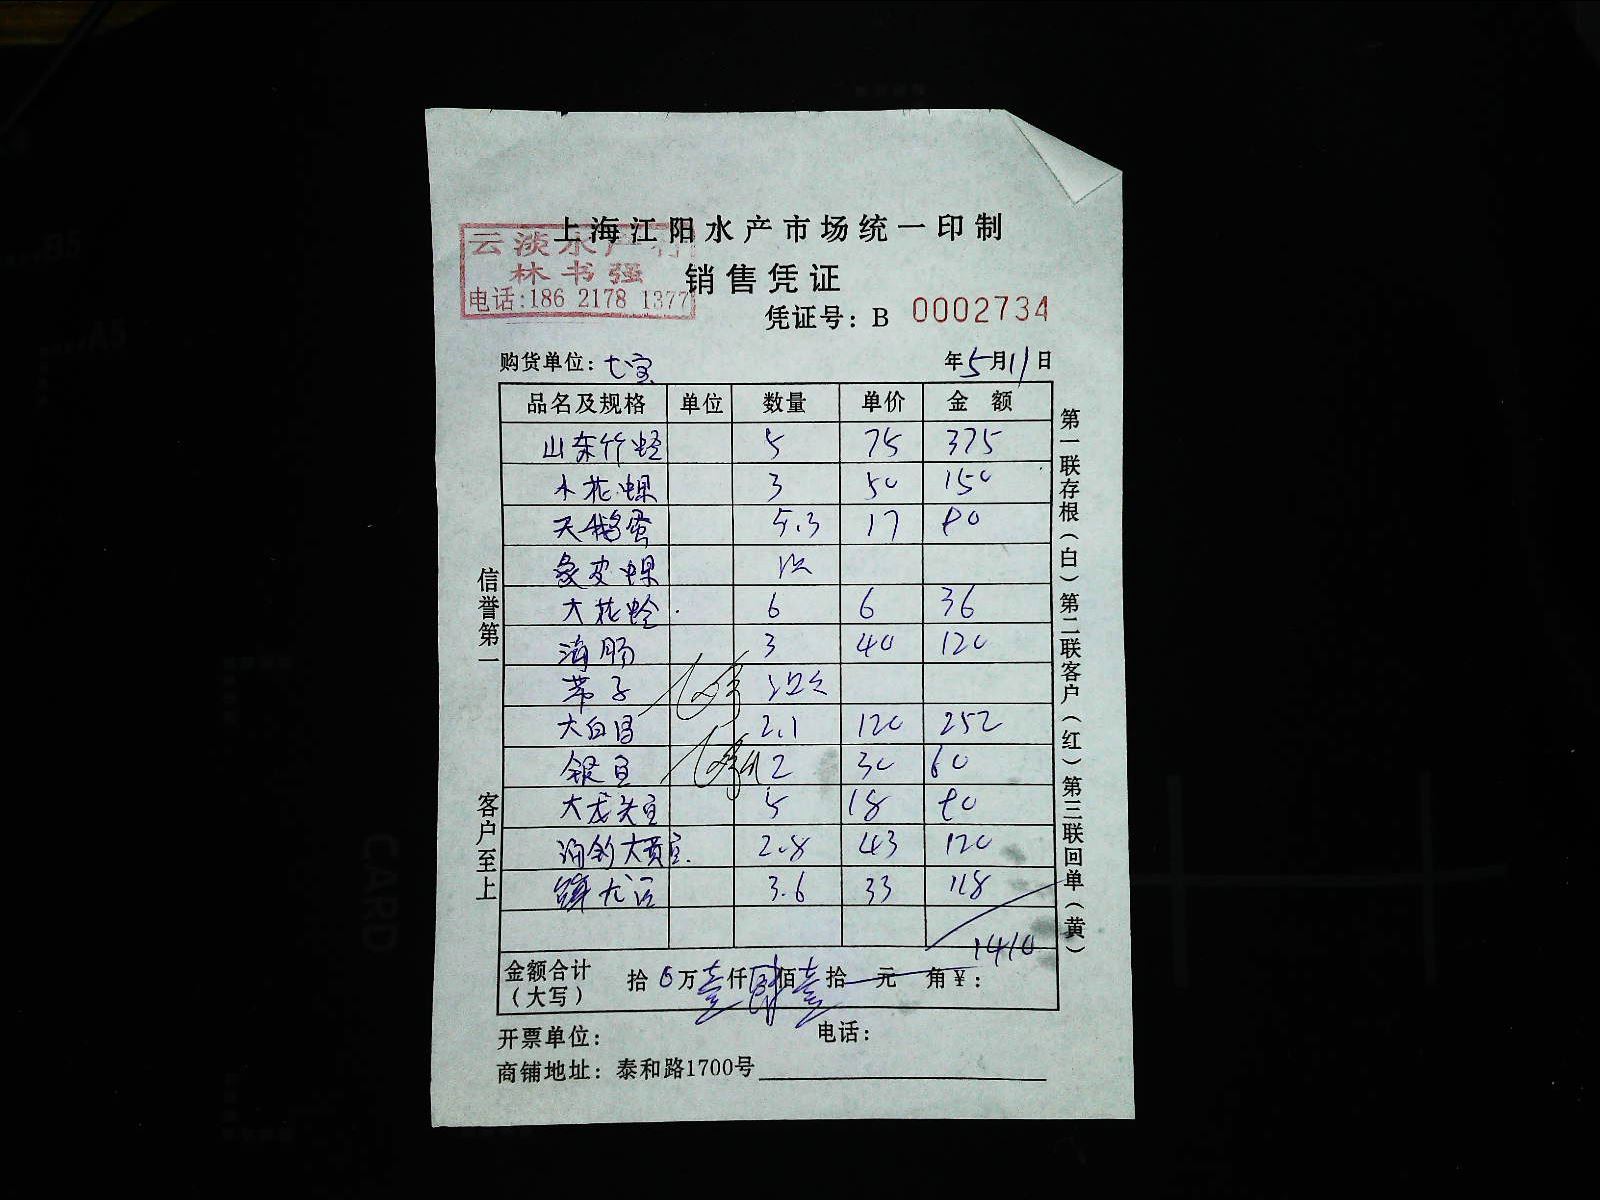 上海江阳水产市场统一印制
云淡水产行
林书强
电话:186 2178 1377
销售凭证
凭证号: B 0002734
购货单位: 七宝 年5月11日
品名及规格 单位 数量 单价 金额
山东竹蛏 5 75 375
木花螺 3 50 150
天鹅蛋 5.3 17 90
象皮螺
大花蛤 6 6 36
海肠 3 40 120
带子
大白 2.1 120 252
银 2 30 60
大龙头 5 18 90
大黄 2.8 43 120
3.6 33 118
1410
金额合计(大写) 拾0万壹仟肆佰壹拾 元 角¥:
开票单位: 电话:
商铺地址: 泰和路1700号
信誉第一
客户至上
第一联存根(白)第二联客户(红)第三联回单(黄)